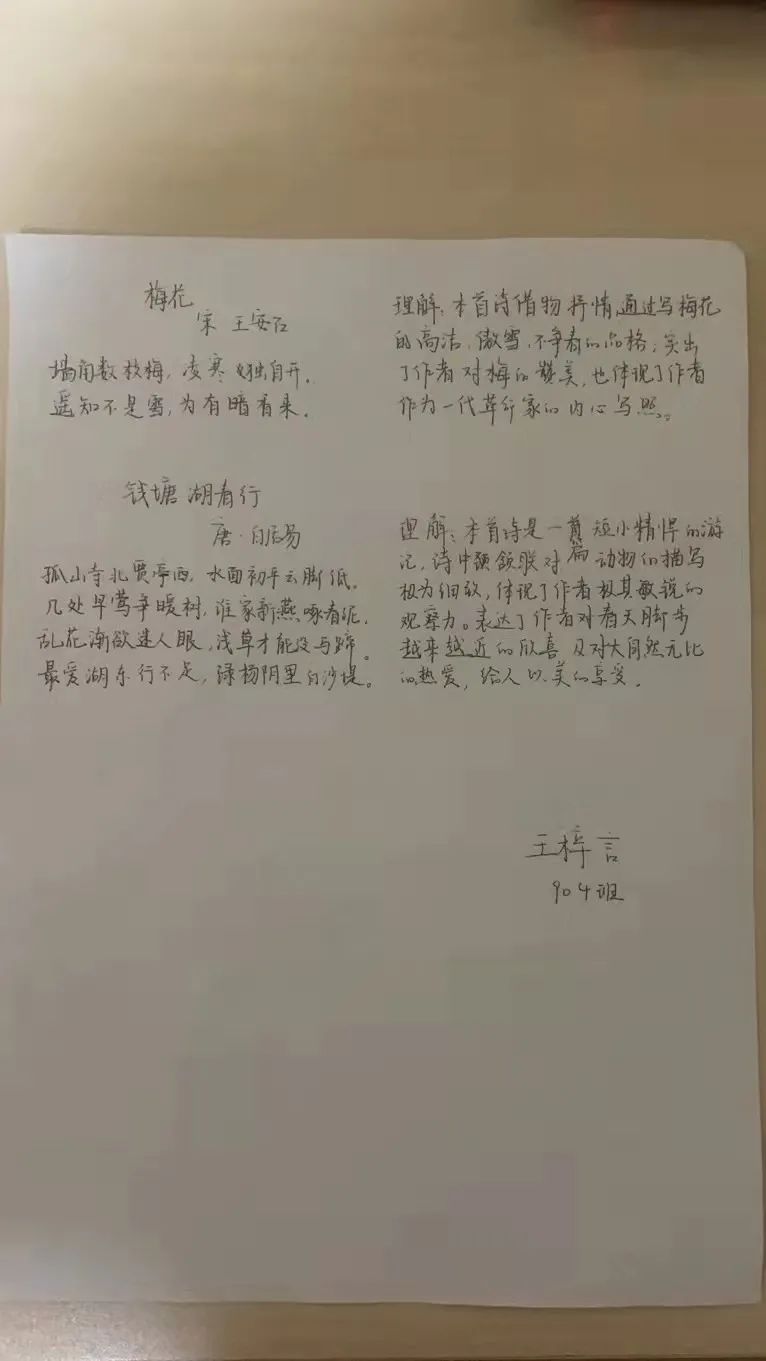 梅花
宋 王安石
墙角数枝梅，凌寒独自开．
遥知不是雪，为有暗香来．
理解：本首诗借物抒情，通过写梅花
的高洁，傲雪，不争春的品格；突出
了作者对梅的赞美，也体现了作者
作为一代革新家的内心写照。
钱塘湖春行
唐·白居易
孤山寺北贾亭西，水面初平云脚低．
几处早莺争暖树，谁家新燕啄春泥．
乱花渐欲迷人眼，浅草才能没马蹄．
最爱湖东行不足，绿杨阴里白沙堤。
理解：本首诗是一篇短小精悍的游
记，诗中颔联对动物的描写
极为细致，体现了作者极其敏锐的
观察力。表达了作者对春天脚步
越来越近的欣喜及对大自然无比
的热爱，给人以美的享受．
王梓言
904班